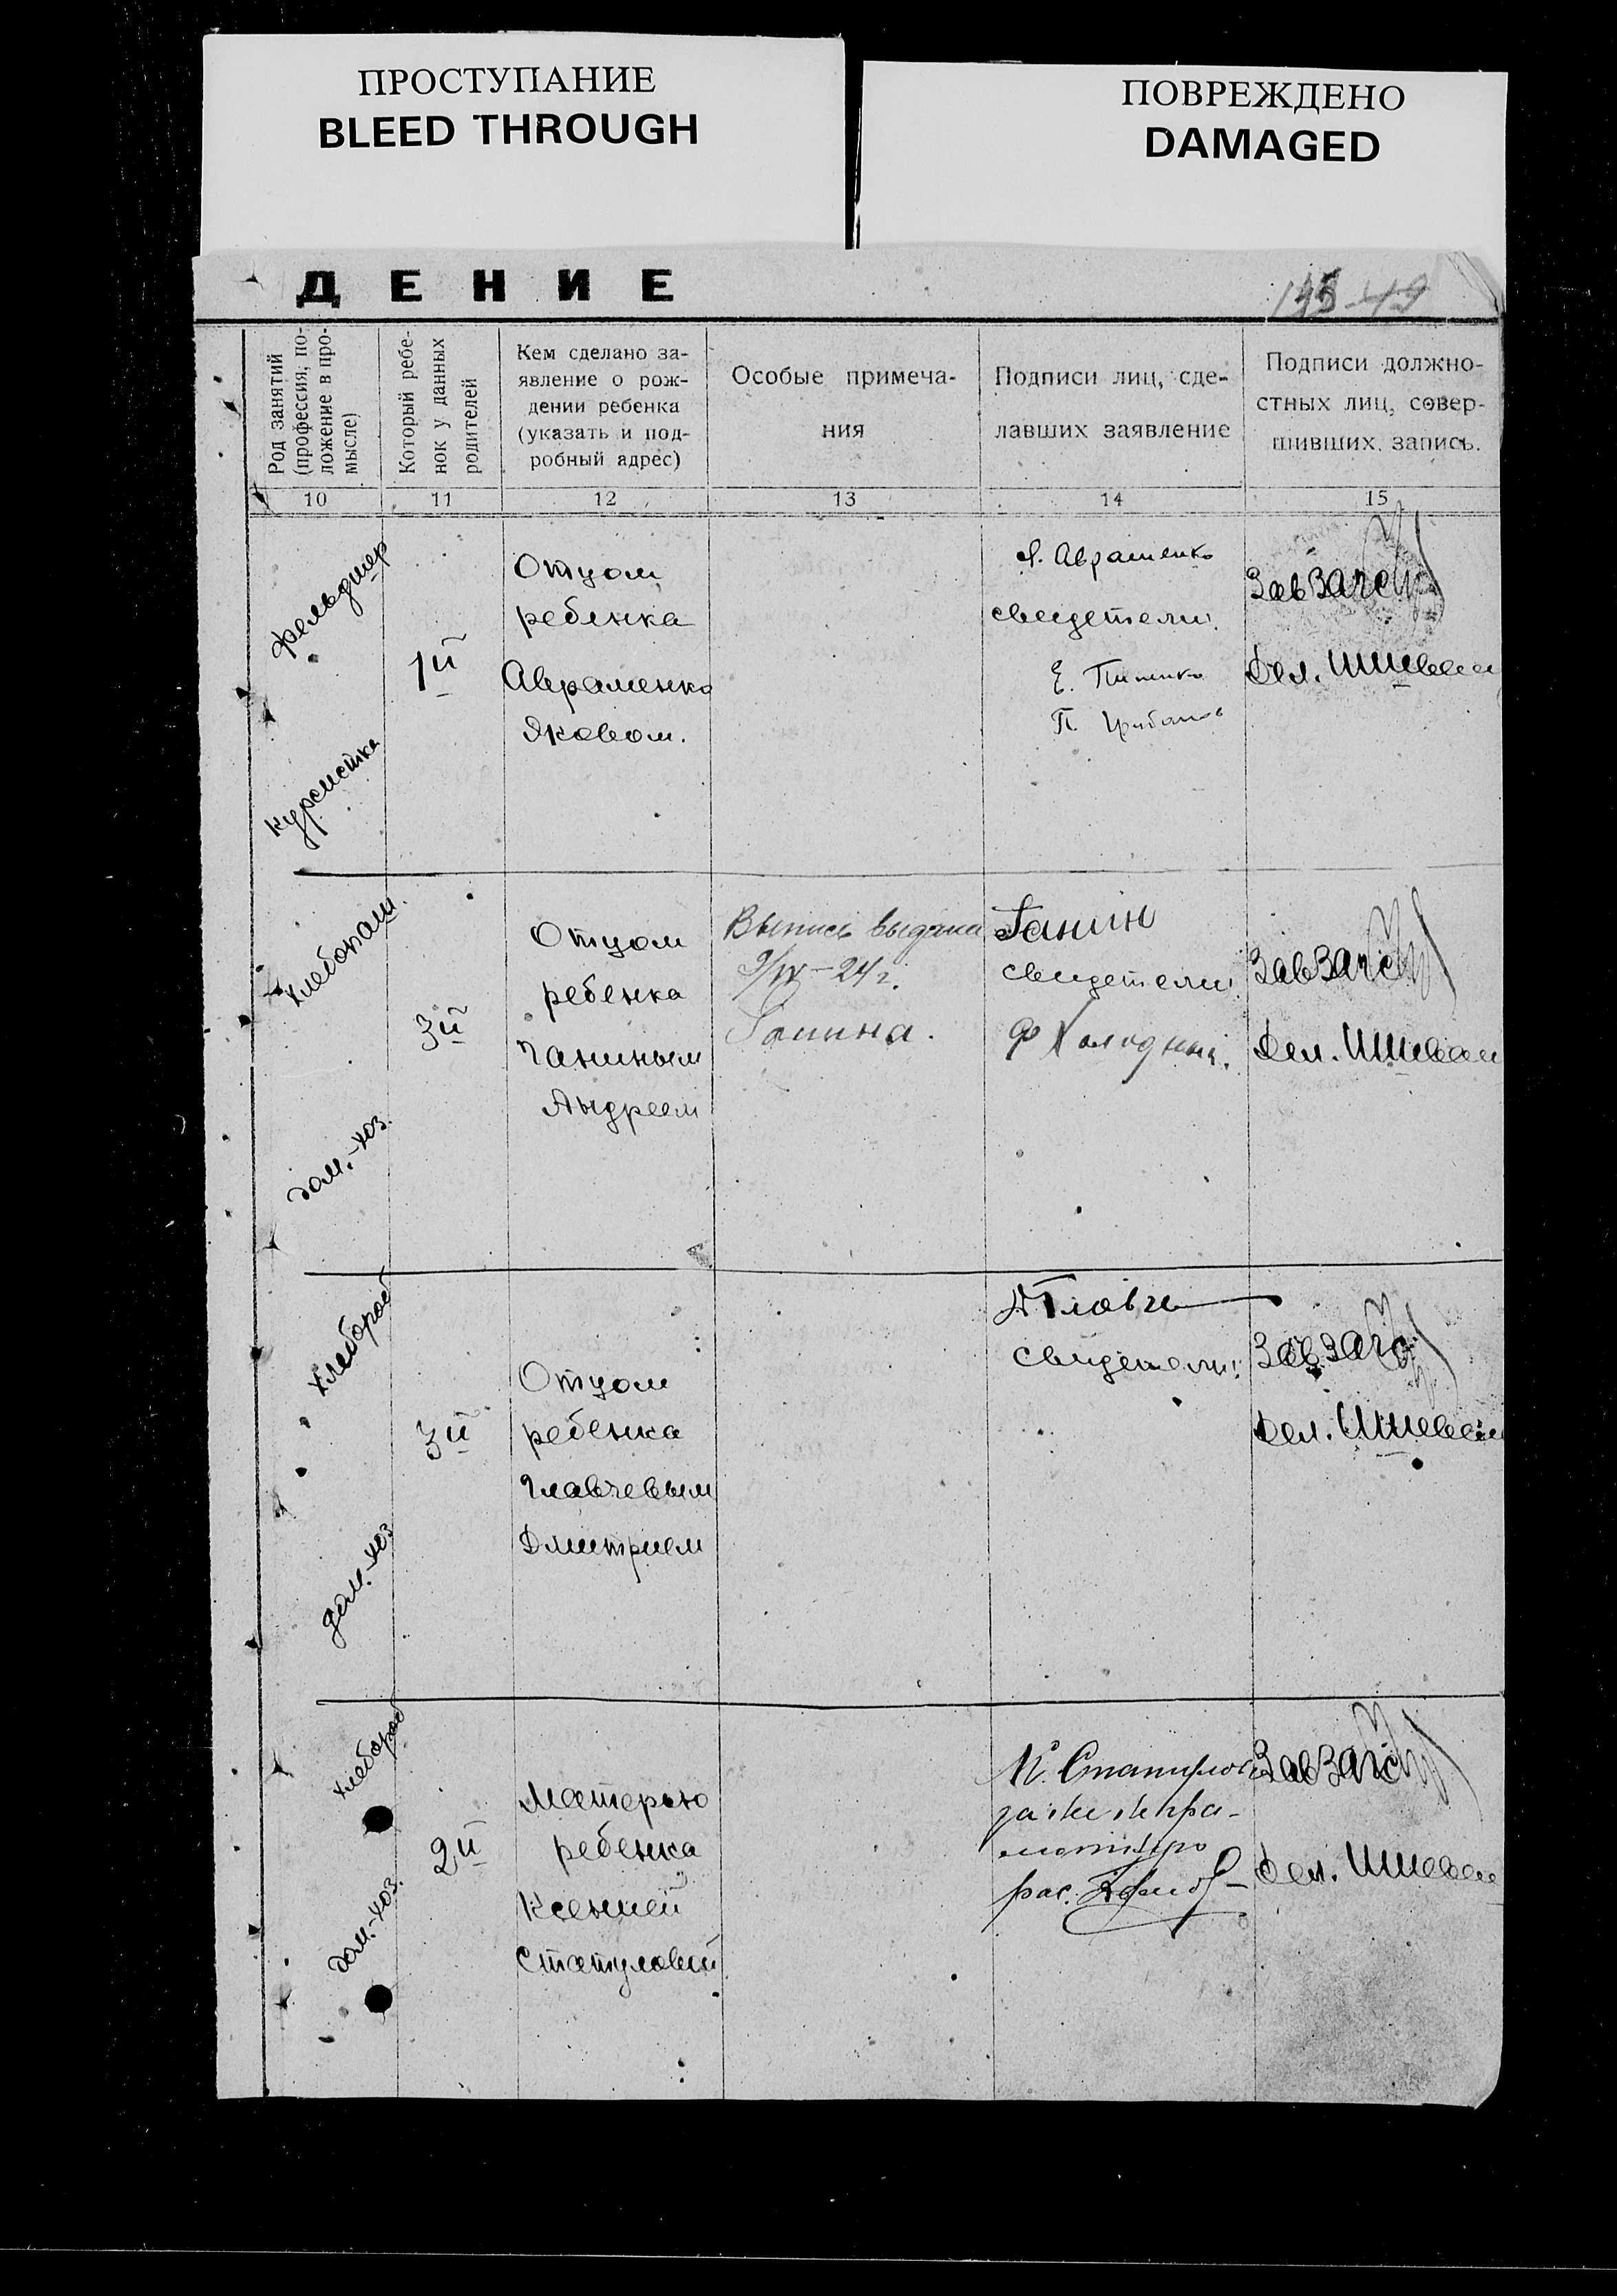 ПРОСТУПАНИЕ
BLEED THROUGH
ПОВРЕЖДЕНО
DAMAGED
ДЕНИЕ
Род занятий
(профессия, по-
ложение в про-
мысле)
Который ребе-
нок у данных
родителей
Кем сделано за-
явление о рож-
дении ребенка
(указать и под-
робный адрес)
Особые примеча-
ния
Подписи лиц, сде-
лавших заявление
Подписи должно-
стных лиц, совер-
шивших запись.
10
11
12
13
14
15
фельдшер
курсистка
1й
Отцом
ребенка
Авраменко
Яковом.
Я. Авраменко
свидетели:
Е.
П.
ЗавЗагс
Дел.
хлебопаш.
дом.-хоз.
3й
Отцом
ребенка
Ганиным
Андреем
Выпись выдана
9/IV-24 г.
Ганина.
Ганин
свидетели:
Ф Холодный.
ЗавЗагс
Дел.
хлебороб
дом.-хоз
3й
Отцом
ребенка
Главчевым
Дмитрием
Д Главче
свидетели:
ЗавЗагс
Дел.
хлебороб
дом.-хоз.
2й
Матерью
ребенка
Ксенией
Статуловой
К.
рас.
ЗавЗагс
Дел.